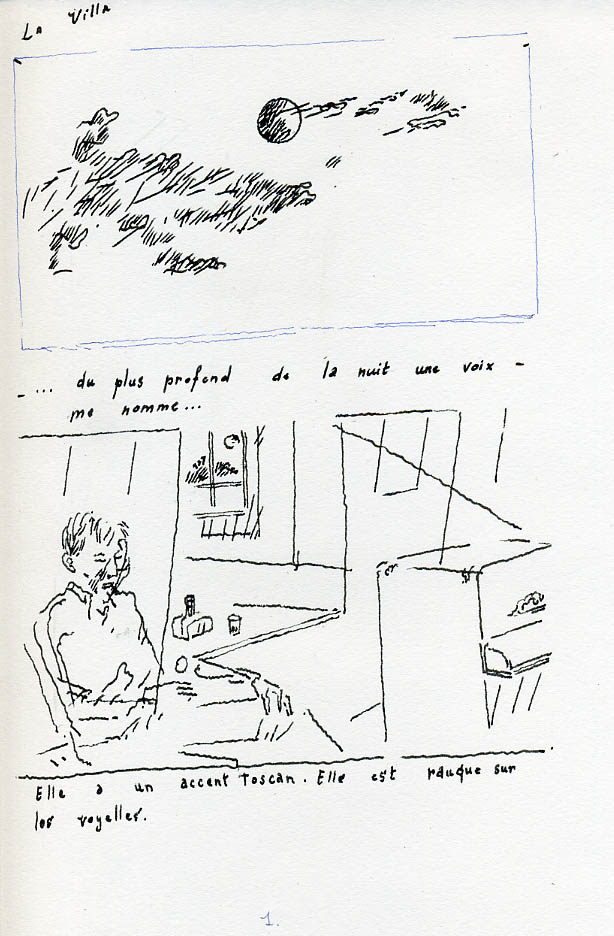 La Villa
- ... du plus profond de la nuit une voix -
me nomme...
Elle a un accent Toscan. Elle est rauque sur
les voyelles.
1.